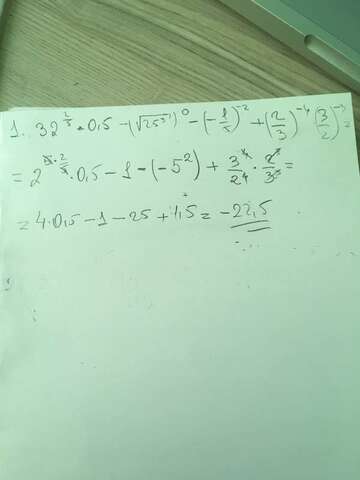 1. 32^{2/5} · 0,5 - (√25^{3})^0 - (-1/5)^{-2} + (2/3)^{-4} (3/2)^{-3} =
= 2^{5·2/5} · 0,5 - 1 - (-5^2) + 3^4/2^4 · 2^3/3^3 =
= 4·0,5 - 1 - 25 + 1,5 = -22,5